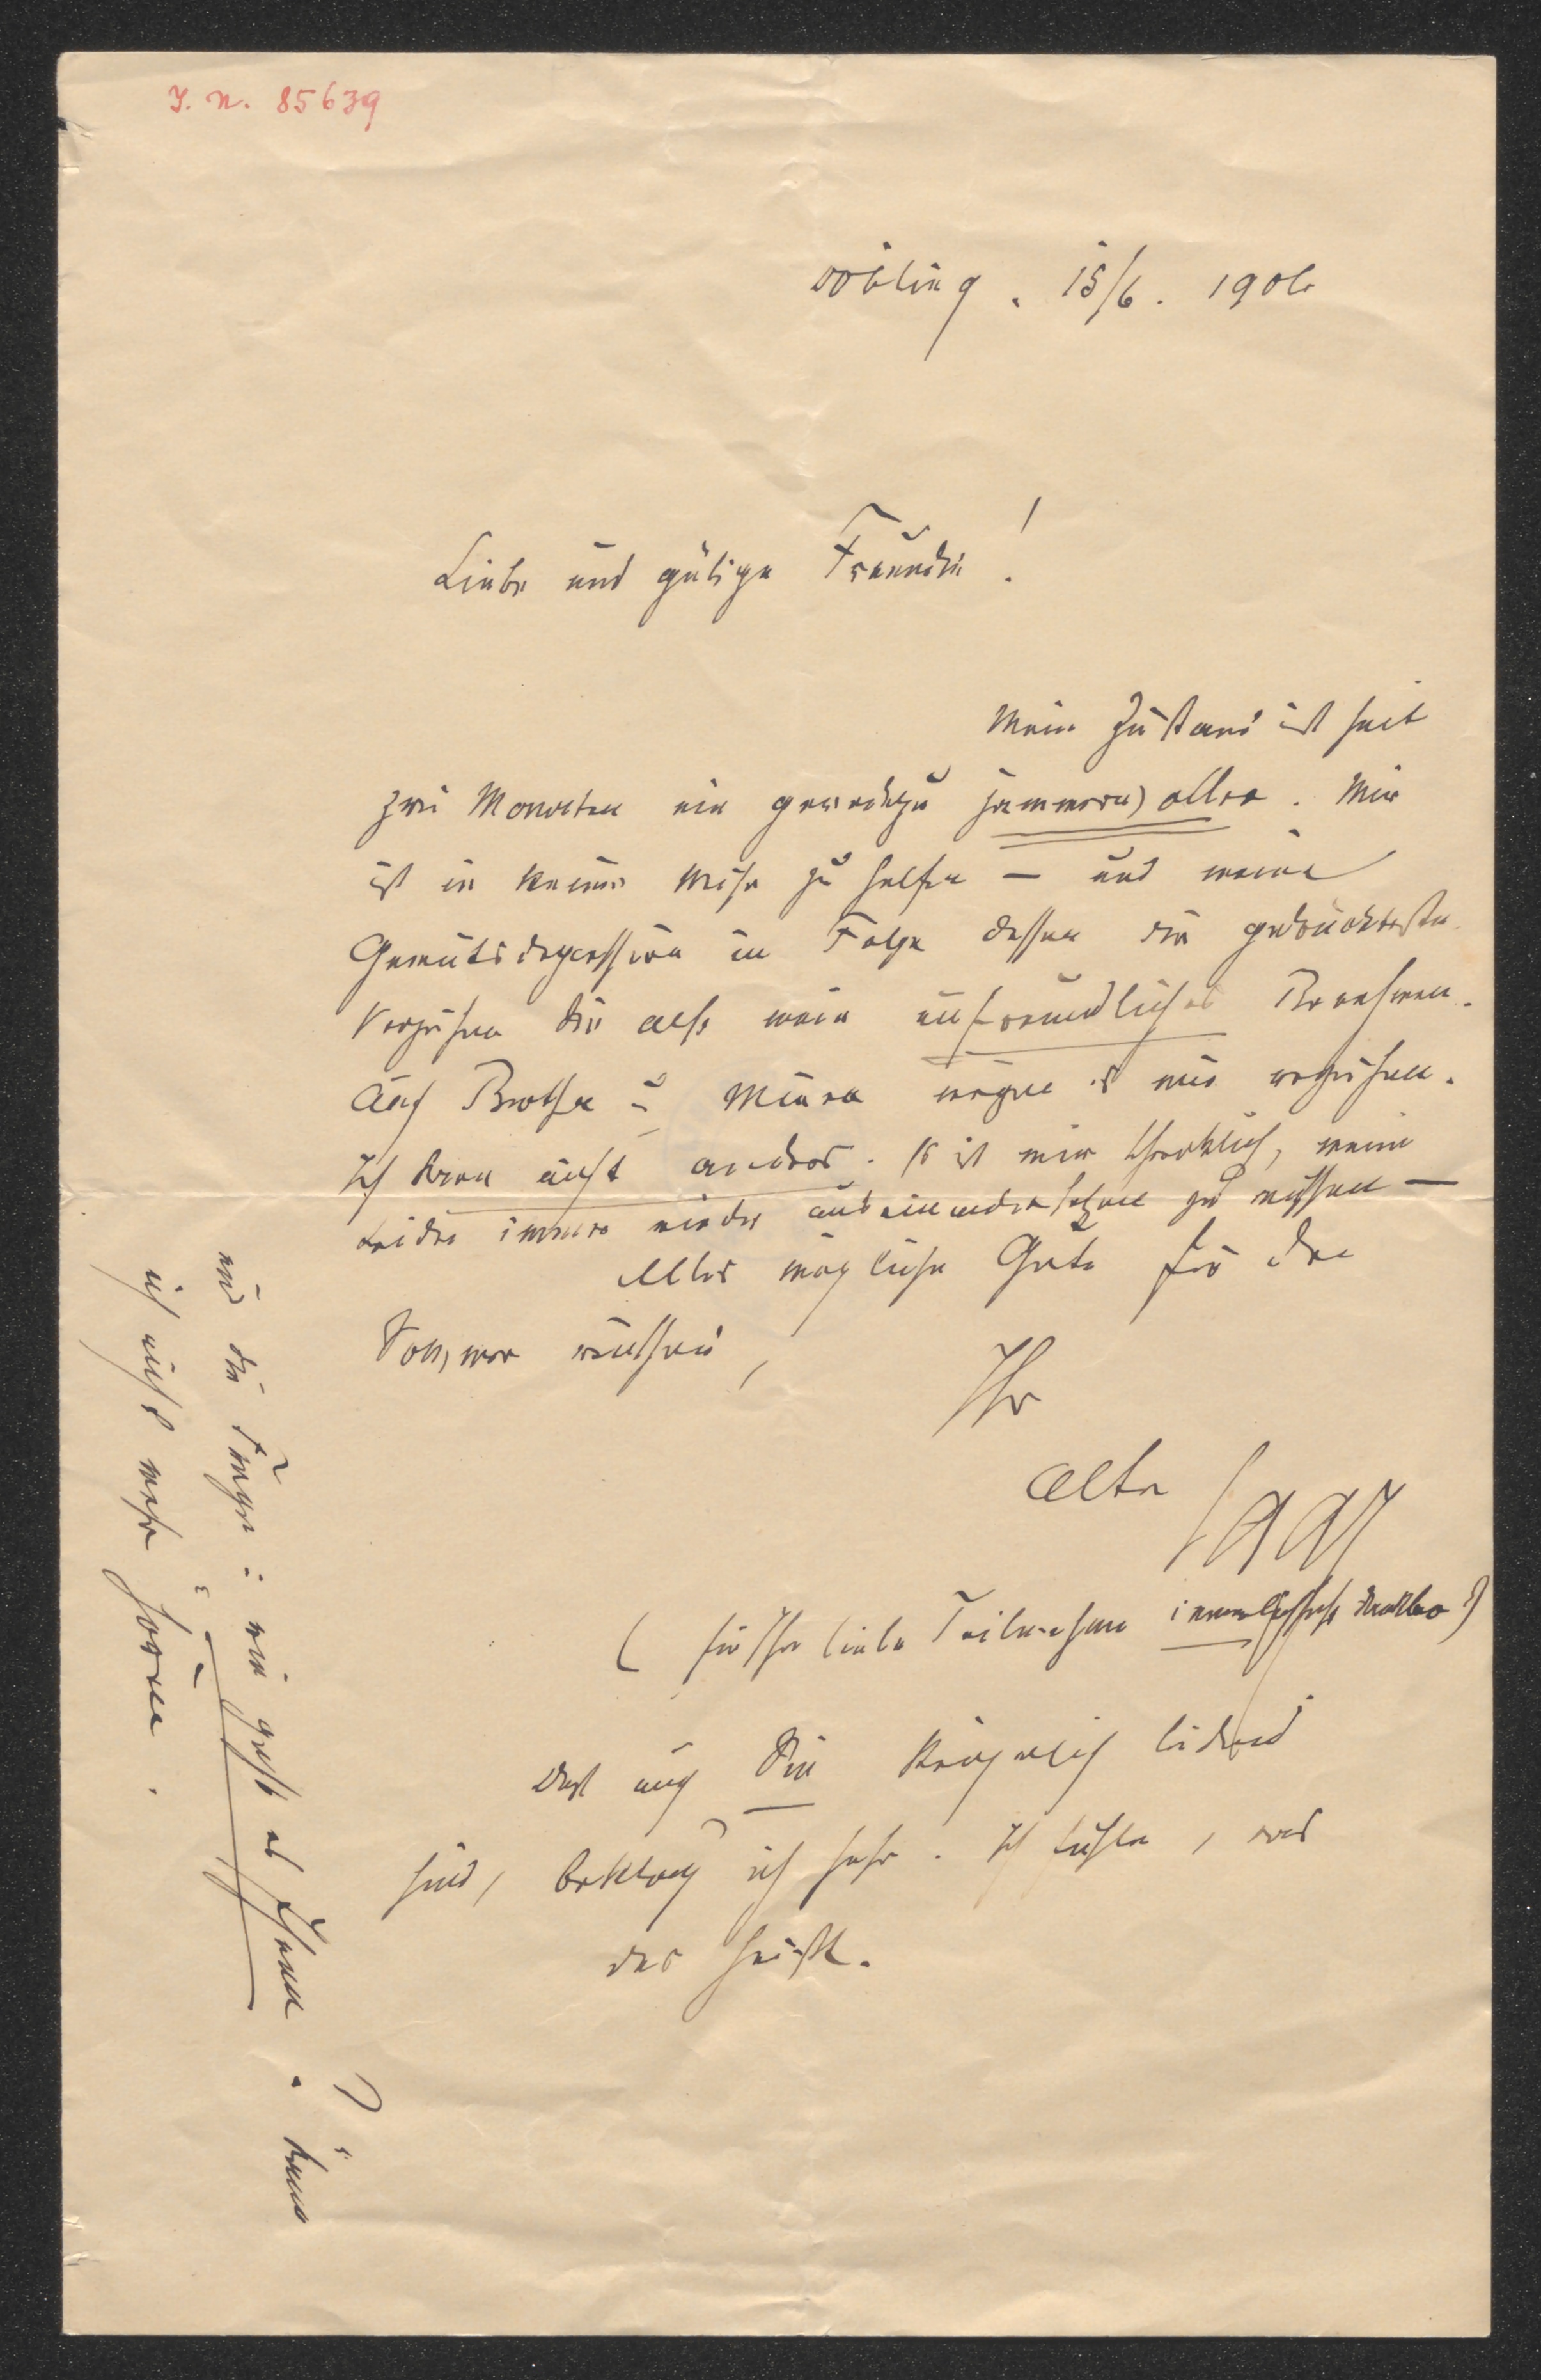 I. N. 85639
Döbling. 15/6. 1906
Liebe und gütige Freundin!
Mein Zustand ist seit
zwei Monaten ein geradezu jammervoller. Mir
ist in keiner Weise zu helfen — und meine
Gemütsdepression in Folge dessen die gedrückteste.
Verzeihen Sie also mein unfreundliches Benehmen.
Auch Bertha u. Minna mögen es mir verzeihen.
Ich kann nicht anders. Es ist mir schrecklich, meine
Leiden immer wieder auseinandersetzen zu müssen —
Alles mögliche Gute für den
Sommer wünschend,
Ihr
alter Saar
(für Ihre liebe Teilnahme dankbar!)
Daß auch Sie körperlich leidend
sind, beklag ich sehr. Ich fühle, was
das heißt.
und die Frage: wie geht es Ihnen? kann
ich nicht mehr hören.